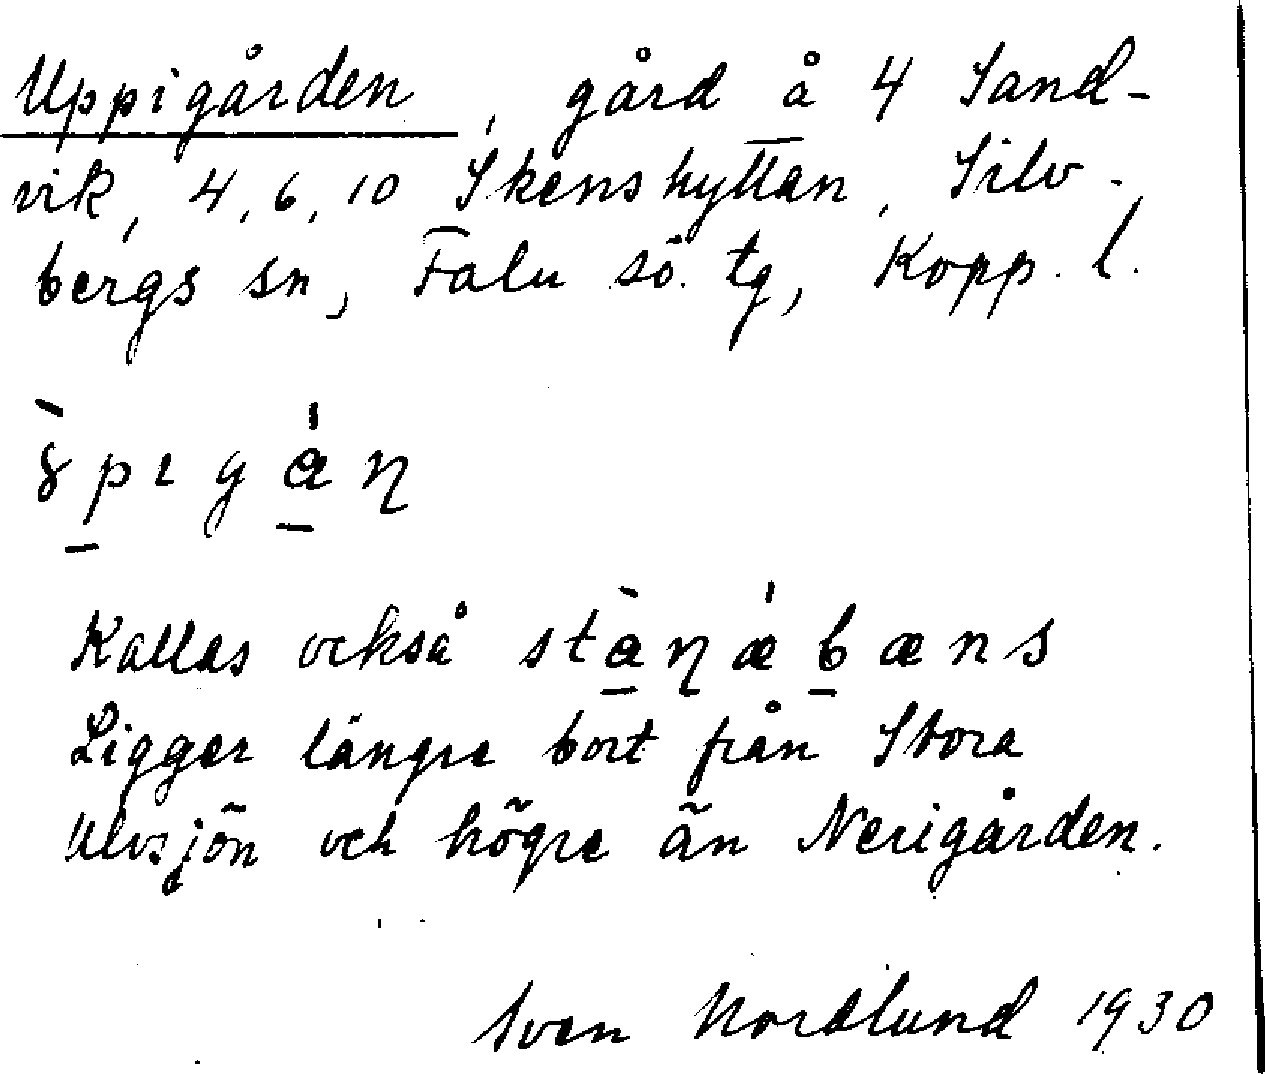 Uppigården, gård å 4 Sand-
vik, 4, 6, 10 Skenshyttan, Silv-
bergs sn, Falu sö. tg, Kopp. l.
Kallas också
Ligger längre bort från Stora
Ulvsjön och högre än Nerigården.
Sven Nordlund 1930